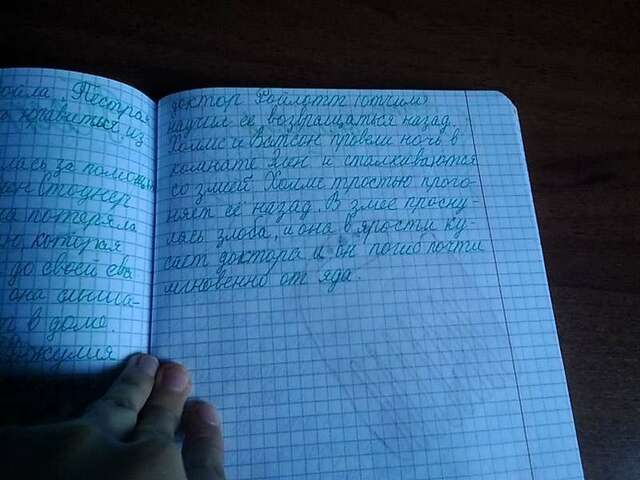 ойла „Пёстрая
нравиться из
лась за помощью
ен Стоунер
на потеряла
ю которая
до своей сва
она слыша-
т в доме.
Джулия
доктор Ройлотт (отчим)
научил её возвращаться назад.
Холмс и Ватсон провели ночь в
комнате Элен и сталкиваются
со змеёй. Холмс тростью прого-
няет её назад. В змее просну-
лась злоба, и она в ярости ку-
сает доктора и он погиб почти
мгновенно от яда.